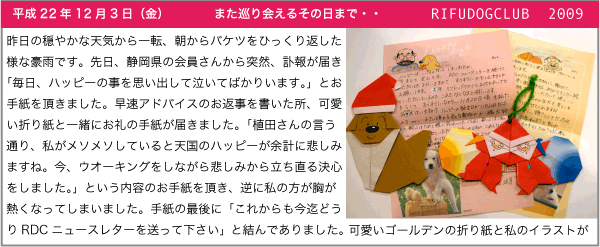 平成22年12月3日（金） また巡り会えるその日まで・・ RIFUDOGCLUB 2009
昨日の穏やかな天気から一転、朝からバケツをひっくり返した
様な豪雨です。先日、静岡県の会員さんから突然、訃報が届き
「毎日、ハッピーの事を思い出して泣いてばかりいます。」とお
手紙を頂きました。早速アドバイスのお返事を書いた所、可愛
い折り紙と一緒にお礼の手紙が届きました。「植田さんの言う
通り、私がメソメソしていると天国のハッピーが余計に悲しみ
ますね。今、ウオーキングをしながら悲しみから立ち直る決心
をしました。」という内容のお手紙を頂き、逆に私の方が胸が
熱くなってしまいました。手紙の最後に「これからも今迄どう
りRDCニュースレターを送って下さい」と結んでありました。可愛いゴールデンの折り紙と私のイラストが